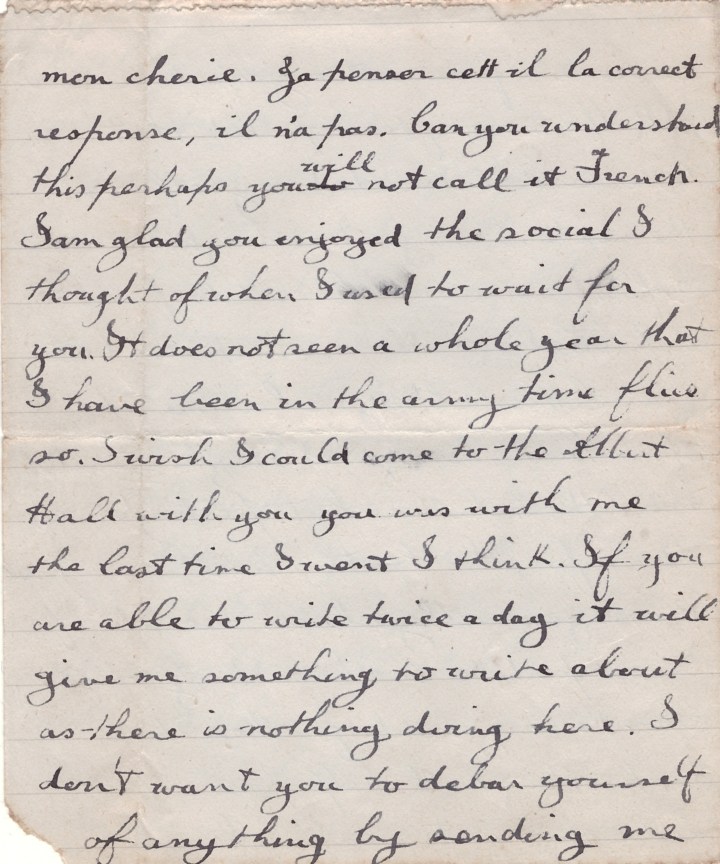 mon cherie. Ja penser cett il la correct
response, il n'a pas. Can you understand
this perhaps you will not call it French.
I am glad you enjoyed the social I
thought of when I used to wait for
you. It does not seen a whole year that
I have been in the army time flies
so. I wish I could come to the Albut
Hall with you you was with me
the last time I went I think. If you
are able to write twice a day it will
give me something to write about
as there is nothing doing here. I
don't want you to debar yourself
of anything by sending me